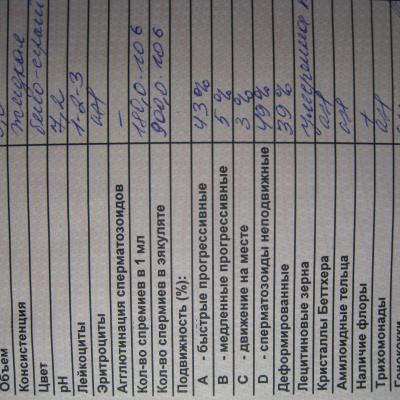 Объем
Консистенция жидкая
Цвет
pH 7,2
Лейкоциты 1-2-3
Эритроциты
Агглютинация сперматозоидов –
Кол-во спремиев в 1 мл 180,0·10 6
Кол-во спермиев в эякуляте 900,0·10 6
Подвижность (%):
A - быстрые прогрессивные 43%
B - медленные прогрессивные 5%
C - движение на месте 3%
D - сперматозоиды неподвижные 49%
Деформированные 39%
Лецитиновые зерна
Кристаллы Беттхера
Амилоидные тельца
Наличие флоры +
Трихомонады
Гонококки